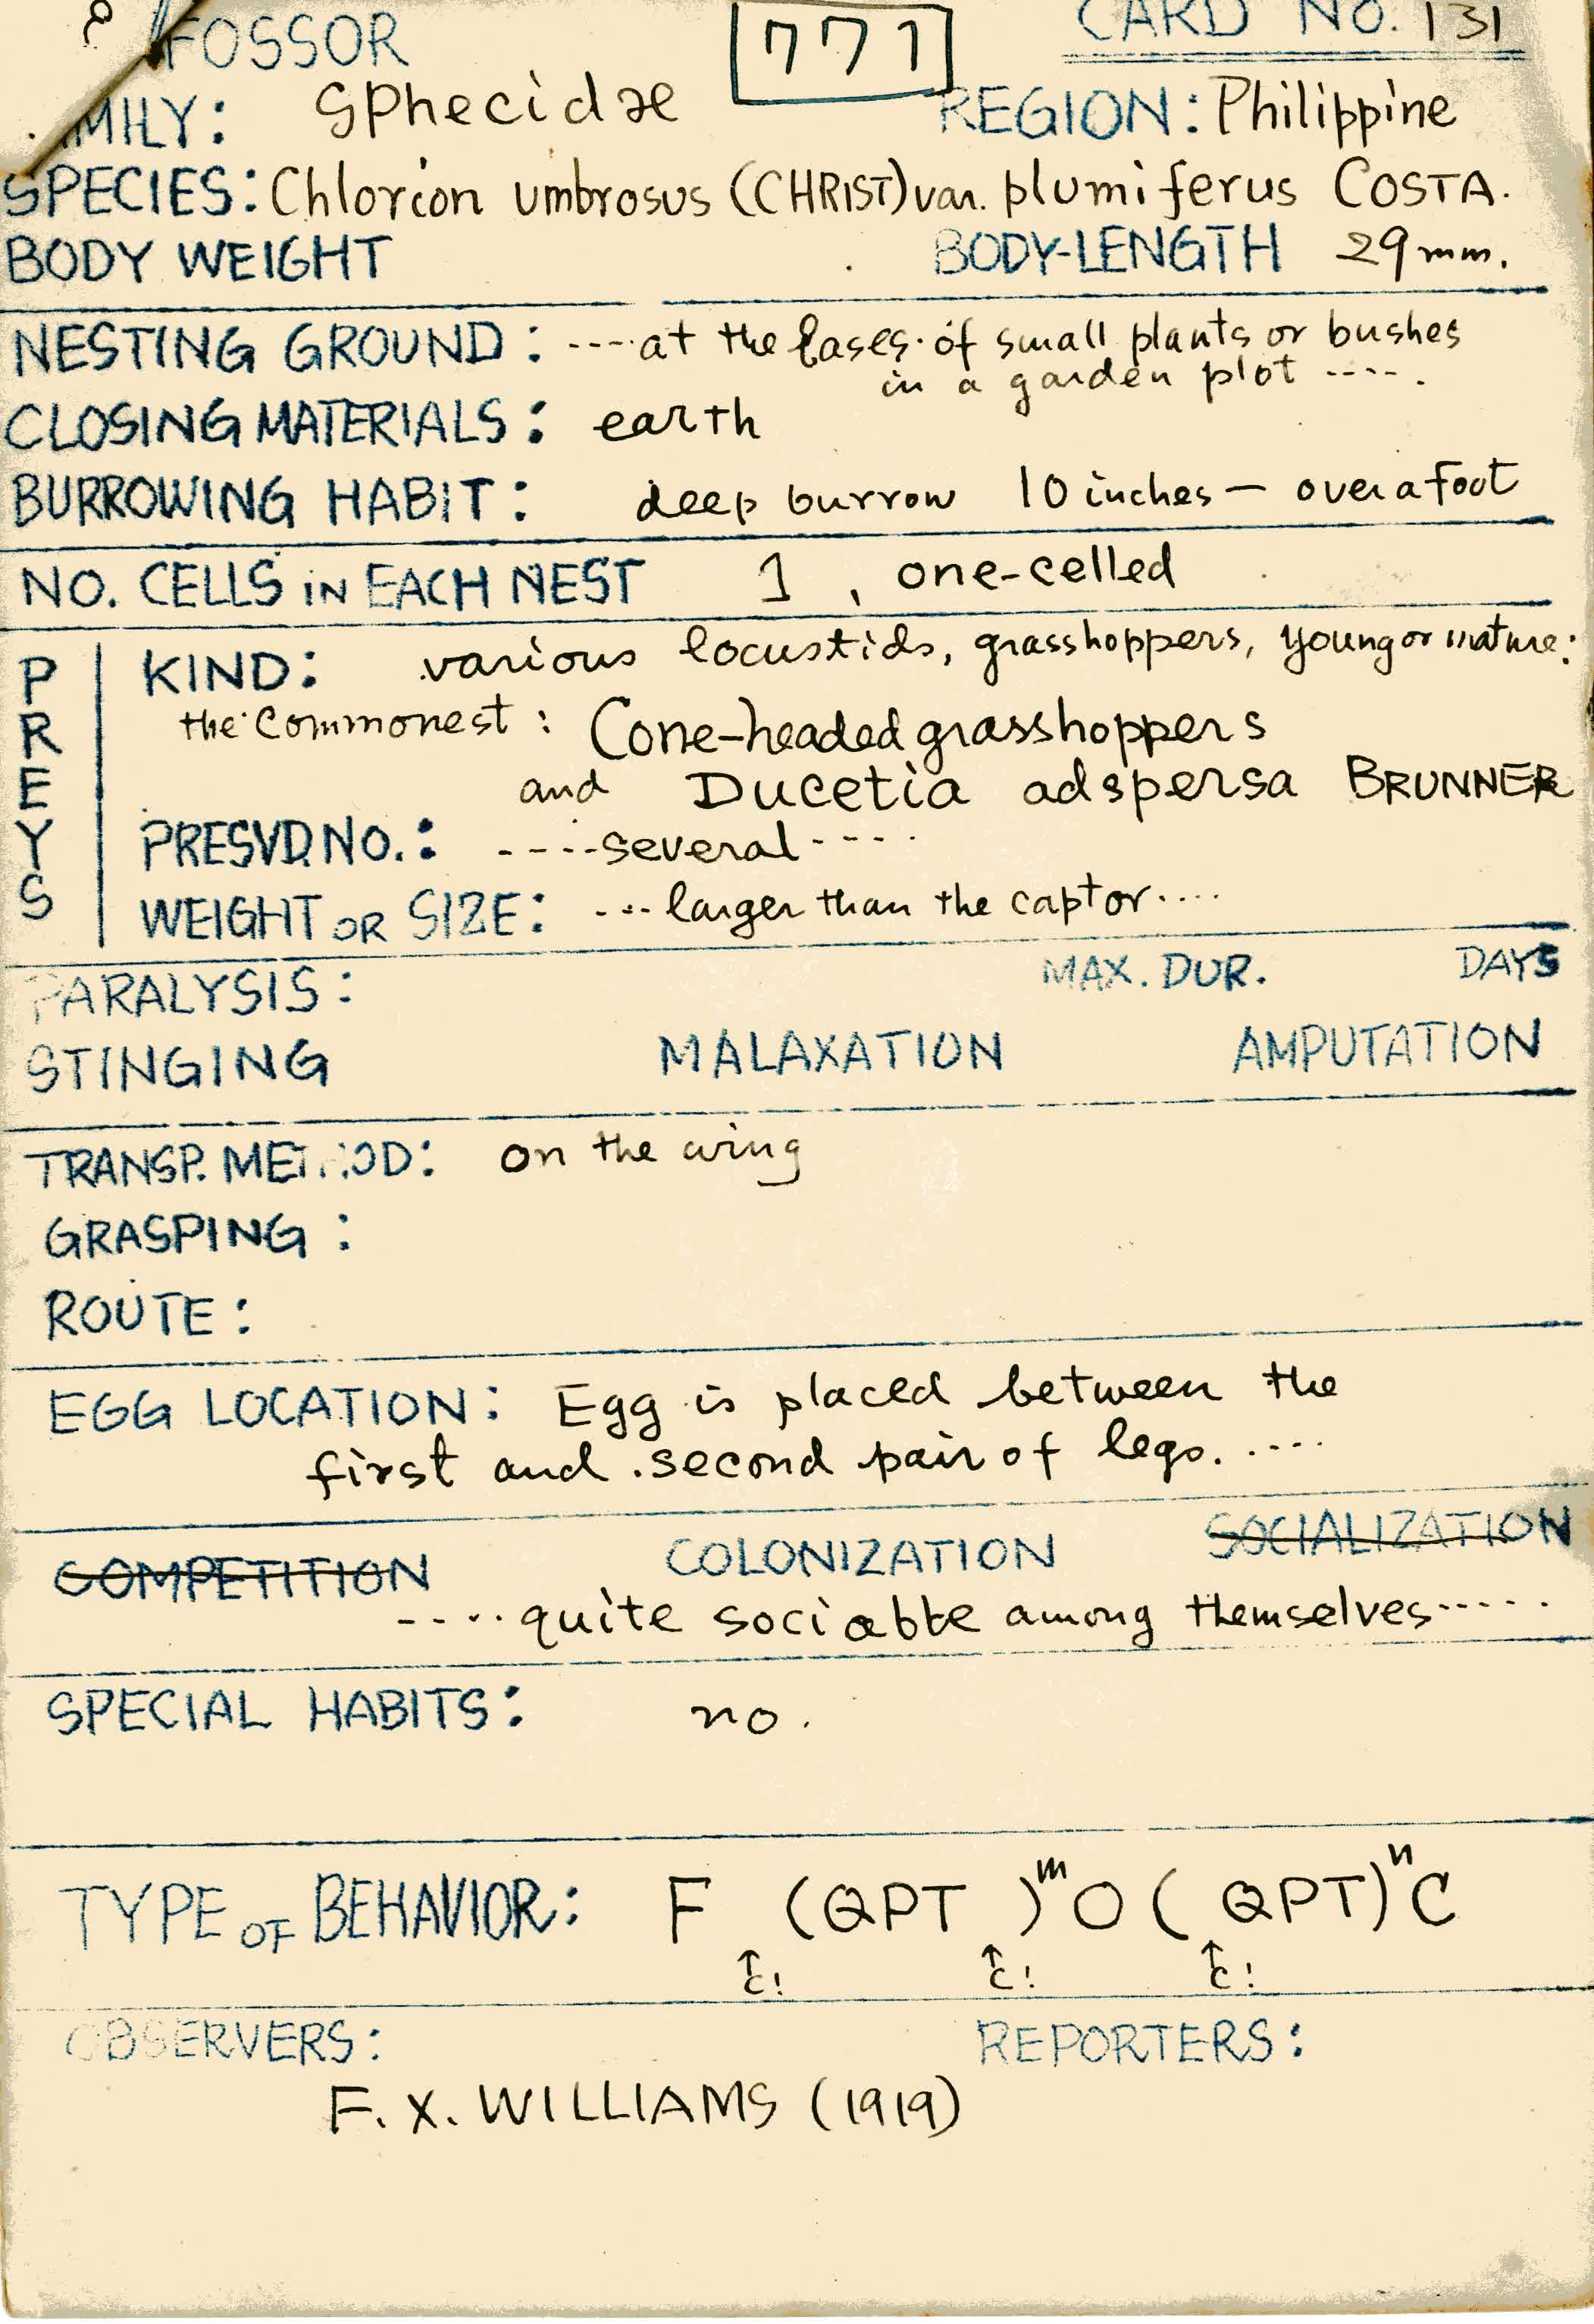 FOSSOR 771 CARD NO. 131
MILY: Sphecidæ REGION: Philippine
SPECIES: Chlorion umbrosus (CHRIST) var. plumiferus COSTA.
BODY WEIGHT BODY-LENGTH 29 mm.
NESTING GROUND: ----at the bases of small plants or bushes
in a garden plot ----.
CLOSING MATERIALS: earth
BURROWING HABIT: deep burrow 10 inches — over a foot
NO. CELLS IN EACH NEST 1, one-celled
PREYS
KIND: various locustids, grasshoppers, young or mature:
the commonest: Cone-headed grasshoppers
and Ducetia adspersa BRUNNER
PRESVD. NO.: ----several----
WEIGHT OR SIZE: ---larger than the captor....
PARALYSIS: MAX. DUR. DAYS
STINGING MALAXATION AMPUTATION
TRANSP. METHOD: on the wing
GRASPING:
ROUTE:
EGG LOCATION: Egg is placed between the
first and second pair of legs. ....
COMPETITION COLONIZATION SOCIALIZATION
----quite sociable among themselves-----
SPECIAL HABITS: no.
TYPE OF BEHAVIOR: F (QPT )ᵐO( QPT)ⁿC
↑c! ↑c! ↑c!
OBSERVERS: REPORTERS:
F. X. WILLIAMS (1919)